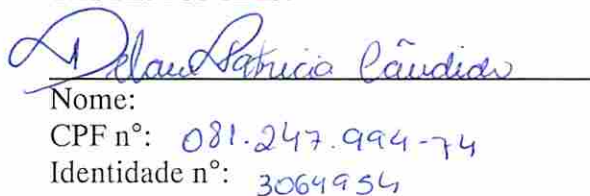 Patricia Cândido
Nome:
CPF nº: 081.247.994-74
Identidade nº: 3064954